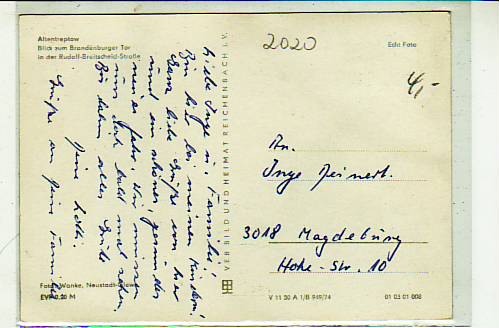 Altentreptow
Blick zum Brandenburger Tor
in der Rudolf-Breitscheid-Straße
2020
Echt Foto
4,-
Liebe Inge u. Familie!
Bin hier bei meinen Kindern.
Ganz liebe Grüße von hier
und ein schönes gesundes
neues Jahr. Wir müssen
uns doch bald mal sehen.
alles Gute
Deine
Grüße an Deine Familie
VEB BILD UND HEIMAT REICHENBACH I. V.
An.
Inge
3018 Magdeburg
Hohe-Str. 10
Foto: Wanke, Neustadt-Glewe
EVP 0,20 M
V 11 30 A 1/B 949/74
01 03 01 008